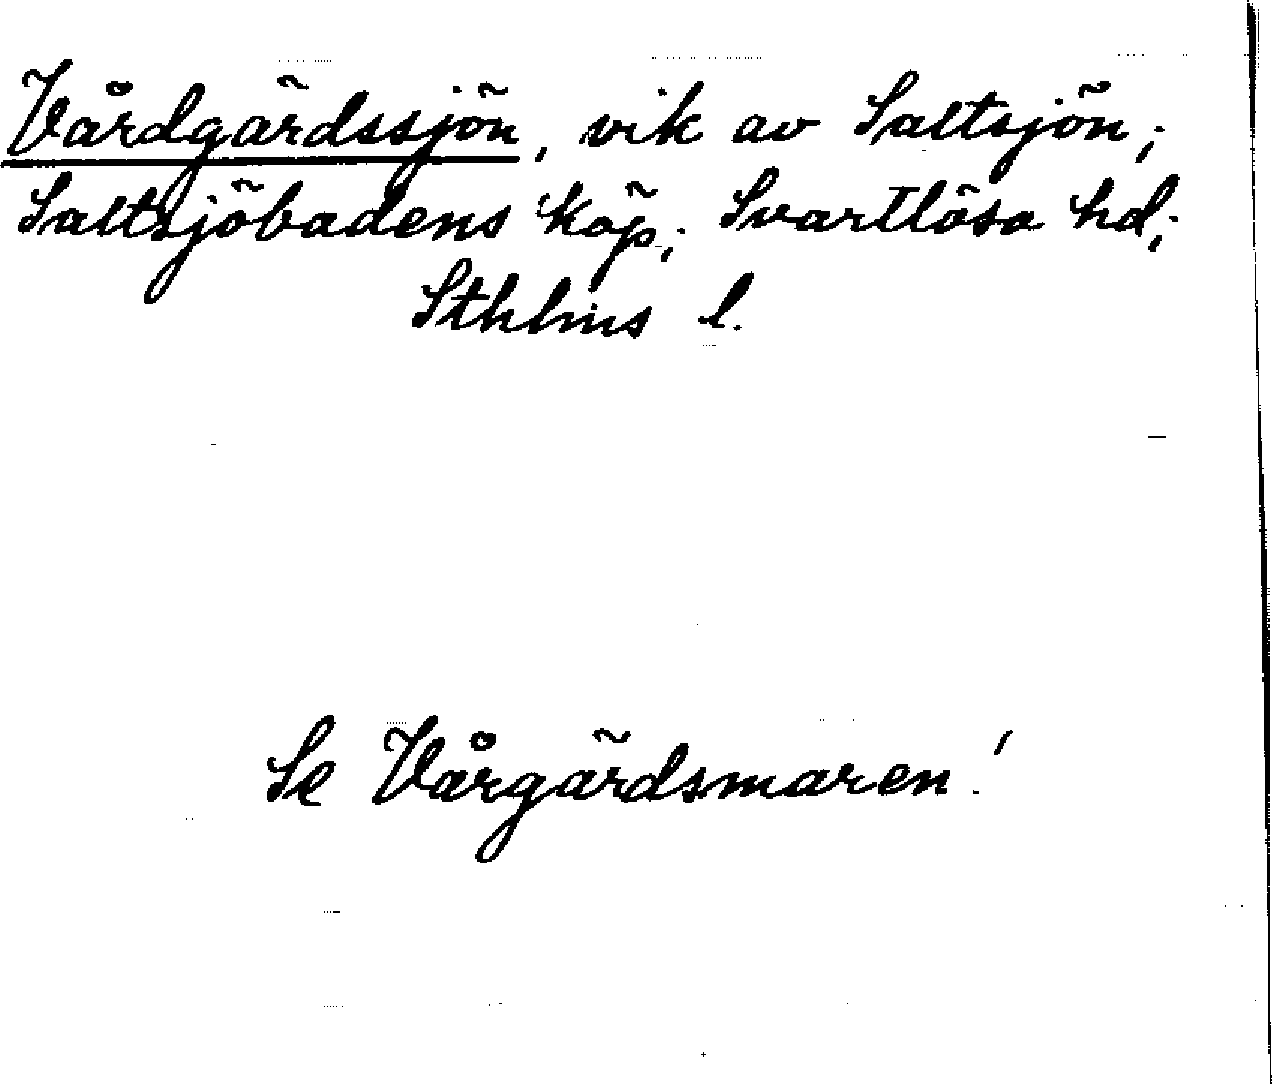 Vårdgärdssjön, vik av Saltsjön;
Saltsjöbadens köp; Svartlösa hd;
Sthlms l.
Se Vårgärdsmaren!